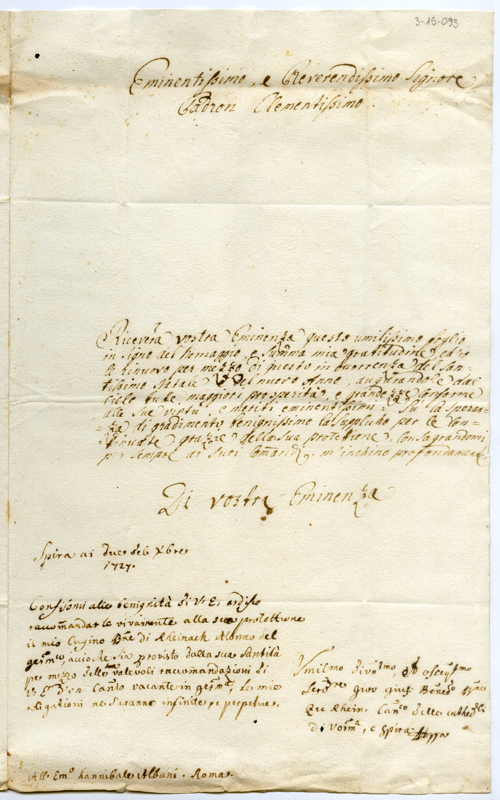 3-15-093
Eminentissimo, e Reverendissimo Signore
Padron Clementissimo.
Riceverà vostra Eminenza questo umilissimo foglio
in signo del homaggio, e summa mia gratitudine, ch'io
le rinuovo per mezzo di questo in currenza del San=
tissimo Natale del nuovo Anno, augurandole dal
Cielo tute maggiori prosperità, e grandezze conforme
alle Sue virtù, e meriti eminentissimi: Sù la speran=
=za di gradimento benignissimo la supplico per le con=
=tinuate grazze della sua protettione, consagrandomi
per sempre ai suoi comandi, m'inchino profondamente
Di vostra Eminenza
Spira ai due del Xbre
1727.
alla benignità di V: E: ardisco
raccomandarle vivamente alla sua protettione
il mio Cugino Bne di Rheinach Alonno del
germco, acciochè sia provisto dalla sua Santità
per mezzo delle valevoli raccomandazioni di
V: E: d'un Canto vacante in germa, le mie
obligazioni ne saranno infinite, e perpetue.
Umilmo divotmo ed obseqmo
Serdre Giov: Bne
Rhein: Canco delle cathedli
di Worma, e Spira
All' Emo hannibale Albani. Roma.